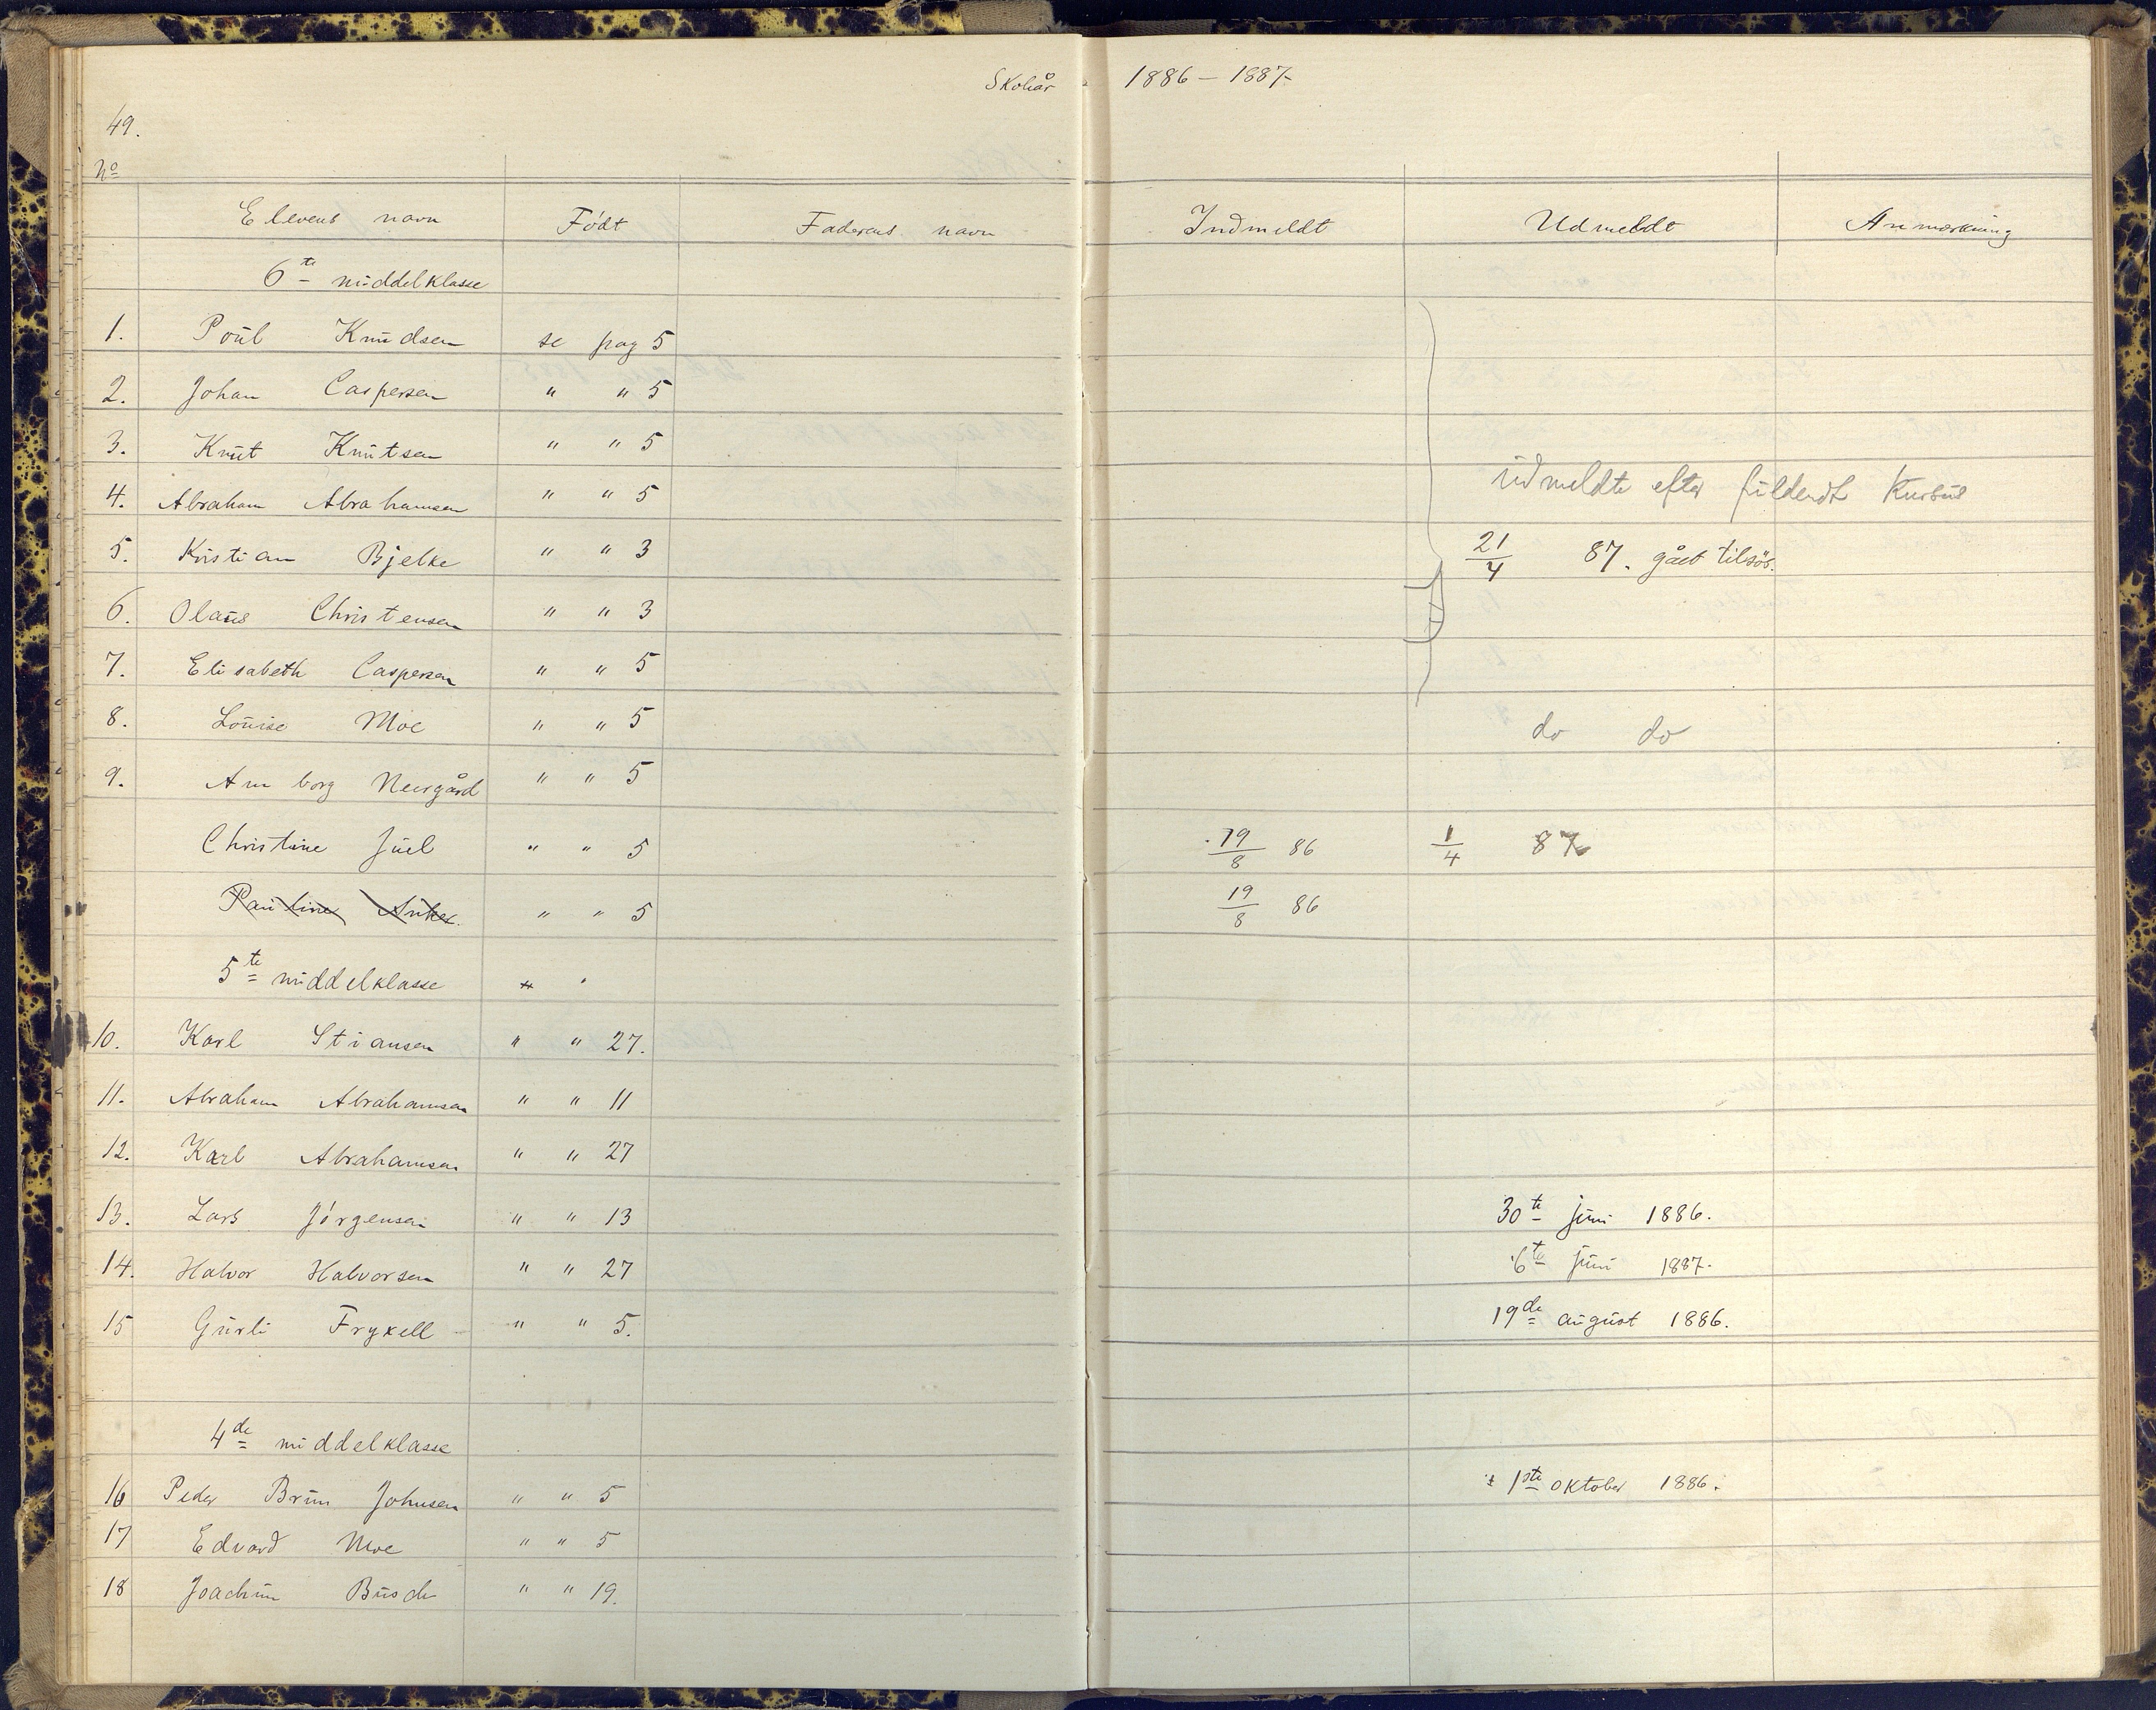 Skoleår 1886 – 1887
49.
No
Elevens navn Født Faderens navn Indmeldt Udmeldt Anmærkning
6te middelklasse
1. Poul Knudsen se pag 5
2. Johan Caspersen " " 5
3. Knut Knutsen " " 5
udmeldte efter fuldendt Kursus
4. Abraham Abrahamsen " " 5
5. Kristian Bjelke " " 3 21/4 87. gået tilsøs.
6. Olaus Christensen " " 3
7. Elisabeth Caspersen " " 5
8. Louise Moe " " 5 do do
9. Annborg Neergård " " 5
Christine Juel " " 5 19/8 86 1/4 87
Pauline Anker " " 5 19/8 86
5te middelklasse
10. Karl Stiansen " " 27.
11. Abraham Abrahamsen " " 11
12. Karl Abrahamsen " " 27
13. Lars Jörgensen " " 13 30te juni 1886.
14. Halvor Halvorsen " " 27 6te juni 1887.
15 Gurli Frykell " " 5. 19de august 1886.
4de middelklasse
16 Peder Brun Johnsen " " 5 1ste oktober 1886.
17 Edvard Moe " " 5
18 Joachim Busch " " 19.